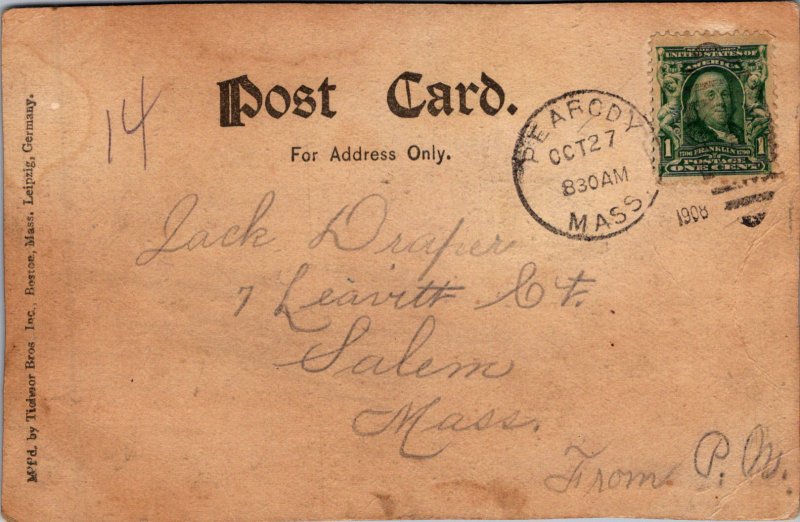 Post Card.
For Address Only.
14
UNITED STATES OF
AMERICA
1 FRANKLIN 1
POSTAGE
ONE CENT
PEABODY
OCT 27
830AM
MASS
1908
Jack Draper
7 Leavitt Ct.
Salem
Mass.
From P. W.
M'f'd. by Tichnor Bros. Inc., Boston, Mass. Leipzig, Germany.